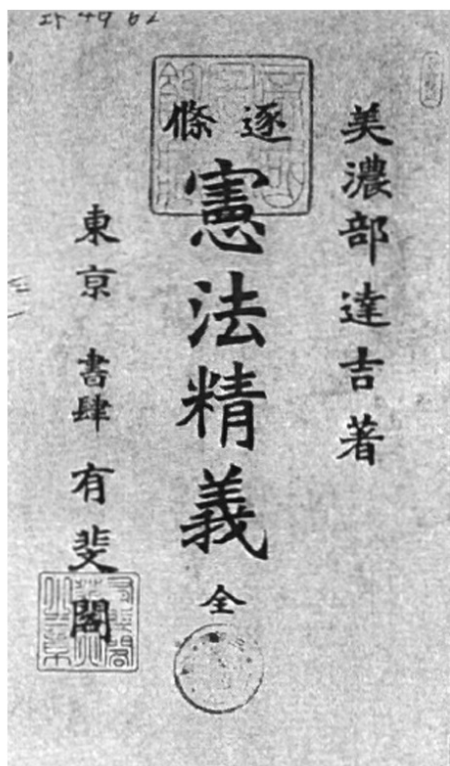 美濃部達吉著
逐條
憲法精義
全
東京 書肆 有斐閣